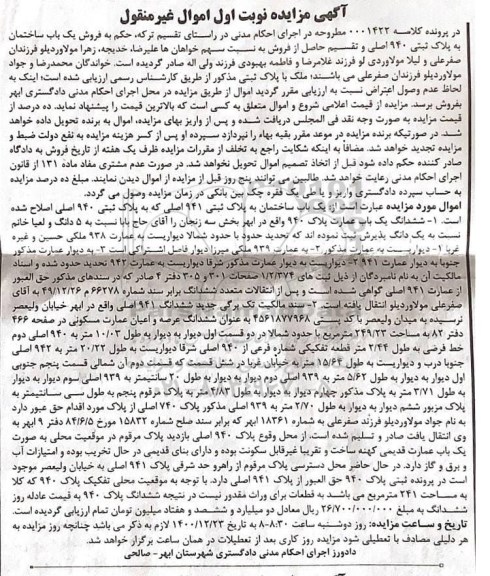 آگهی مزایده نوبت اول اموال غیرمنقول
در پرونده کلاسه ۰۰۰۱۴۲۲ مطروحه در اجرای احکام مدنی در راستای تقسیم ترکه، حکم به فروش یک باب ساختمان
به پلاک ثبتی ۹۴۰ اصلی و تقسیم حاصل از فروش به نسبت سهم خواهان ها علیرضا، خدیجه، زهرا مولاوردیلو فرزندان
صفرعلی و لیلا مولاوردی لو فرزند غلامرضا و فاطمه بهبودی فرزند ولی اله صادر گردیده است. خواندگان محمدرضا و جواد
مولاوردیلو فرزندان صفرعلی می باشند؛ ملک با پلاک ثبتی مذکور از طریق کارشناس رسمی ارزیابی شده است؛ اینک به
لحاظ عدم وصول اعتراض نسبت به ارزیابی مقرر گردید اموال از طریق مزایده در محل اجرای احکام مدنی دادگستری ابهر
بفروش برسد. مزایده از قیمت اعلامی شروع و اموال متعلق به کسی است که بالاترین قیمت را پیشنهاد نماید. ده درصد از
قیمت مزایده به صورت وجه نقد فی المجلس دریافت شده و پس از واریز بهای مزایده، اموال به برنده تحویل داده خواهد
شد. در صورتیکه برنده مزایده در موعد مقرر بقیه بهاء را نپردازد سپرده او پس از کسر هزینه مزایده به نفع دولت ضبط و
مزایده تجدید خواهد شد. مضافا به اینکه شکایت راجع به تخلف از مقررات مزایده ظرف یک هفته از تاریخ فروش به دادگاه
صادر کننده حکم داده شود قبل از اتخاذ تصمیم اموال تحویل نخواهد شد. در صورت عدم مشتری مفاد ماده ۱۳۱ از قانون
اجرای احکام مدنی رعایت خواهد شد. طالبین می توانند پنج روز قبل از مزایده از اموال دیدن نمایند. مبلغ ده درصد مزایده
به حساب سپرده دادگستری واریز و یا یک فقره چک بین بانکی در زمان مزایده وصول می گردد.
اموال مورد مزایده عبارت است از: یک باب ساختمان به پلاک ثبتی ۹۴۱ اصلی که به پلاک ثبتی ۹۴۰ اصلی اصلاح شده
است. ۱- ششدانگ یک باب عمارت پلاک ۹۴۰ واقع در ابهر بخش سه زنجان را آقای حاج بابا نسبت به ۵ دانگ و لعیا خانم
نسبت به یک دانگ پذیرش ثبت نموده اند که تحدید حدود با حدود شمالا دیواریست به عمارت ۹۳۸ ملکی حسین و غیره
غربا ۱- دیواریست به عمارت مذکور ۲- به عمارت ۹۳۹ ملکی میرزا دیوار فاصل اشتراکی است ۳- به دیوار عمارت مذکور
جنوبا به دیوار عمارت ۹۴۱ ۳- دیواریست به دیوار عمارت مذکور شرقا دیواریست به عمارت ۹۴۲ تحدید حدود شده و اسناد
مالکیت آن به نام نامبردگان از ذیل ثبت های ۱/۲/۳۷۴ صفحات ۳۰۱ و ۳۰۵ دفتر ۴ صادر که در سندهای مذکور حق العبور
از عمارت ۹۴۱ اصلی گواهی شده است و پس از انتقالات متعدد ششدانگ برابر سند شماره ۶۶۲۷۸ م ۴۹/۱۲/۲۶ به آقای
صفرعلی مولاوردیلو انتقال یافته است. ۲- سند مالکیت تک برگی جدید ششدانگ ۹۴۱ اصلی واقع در ابهر خیابان ولیعصر
نرسیده به میدان ولیعصر با کد پستی ۴۵۶۱۸۷۷۹۶۸ به عنوان ششدانگ عرصه و اعیان عمارت مسکونی در صفحه ۴۶۶
دفتر ۸۲ به مساحت ۲۴۹/۲۳ مترمربع با حدود شمالا در دو قسمت اول دیوار به دیوار به طول ۱۰/۰۳ متر به ۹۴۰ اصلی دوم
خط فرضی به طول ۲/۴۴ متر قطعه تفکیکی شماره فرعی از ۹۴۰ اصلی شرقا دیواریست به طول ۲۰/۲۲ متر به ۹۴۲ اصلی
جنوبا درب و دیواریست به طول ۱۵/۶۲ متر به خیابان غربا در شش قسمت که قسمت دوم آن شمالی قسمت پنجم جنوبی
اول دیوار به دیوار به طول ۵/۶۲ متر به ۹۳۹ اصلی دوم دیوار به دیوار به طول ۲۰ سانتیمتر به ۹۳۹ اصلی سوم دیوار به دیوار
به طول ۳/۷۱ متر به پلاک مذکور چهارم دیوار به دیوار به طول ۲/۸۳ متر به پلاک مرقوم پنجم به طول سی سانتیمتر به
پلاک مزبور ششم دیوار به دیوار به طول ۲/۷۰ متر به ۹۳۹ اصلی مذکور پلاک ۷۴۰ اصلی از پلاک مورد اقدام حق عبور دارد
به نام جواد مولاوردیلو فرزند صفرعلی به شماره ۱۸۳۶۱ ابهر که برابر سند صلح شماره ۱۵۸۳۲ مورخ ۸۴/۶/۵ دفتر ۹ ابهر به
وی انتقال یافت صادر و تسلیم شده است. از محل وقوع پلاک ۹۴۰ اصلی بازدید پلاک مرقوم در موقعیت محلی به صورت
یک باب عمارت قدیمی کهنه ساخت و تقریبا غیرقابل سکونت بوده و دارای بنای قدیمی در حال تخریب بوده و امتیازات آب
و برق و گاز دارد. در حال حاضر محل دسترسی پلاک مرقوم از راهرو حد شرقی پلاک ۹۴۱ اصلی به خیابان ولیعصر موجود
است در پرونده ثبتی پلاک ۹۴۰ حق العبور از پلاک ۹۴۱ اصلی دارد. با توجه به موقعیت محلی تفکیک پلاک ۹۴۰ که کلا
به مساحت ۲۴۱ مترمربع می باشد به قطعات برای وراث مقدور نیست در نتیجه ششدانگ پلاک ۹۴۰ به قیمت عادله روز
ششدانگ به مبلغ ۲۶/۷۰۰/۰۰۰/۰۰۰ ریال معادل دو میلیارد و ششصد و هفتاد میلیون تومان تمام ارزیابی گردیده است.
تاریخ و ساعت مزایده: روز دوشنبه ساعت ۸:۳۰-۸ به تاریخ ۱۴۰۰/۱۲/۲۳ لازم به ذکر می باشد چنانچه روز مزایده به
هر دلیلی مصادف با تعطیلی شود مزایده روز کاری بعد از تعطیلات در همان ساعت برگزار خواهد شد.
دادورز اجرای احکام مدنی دادگستری شهرستان ابهر - صالحی